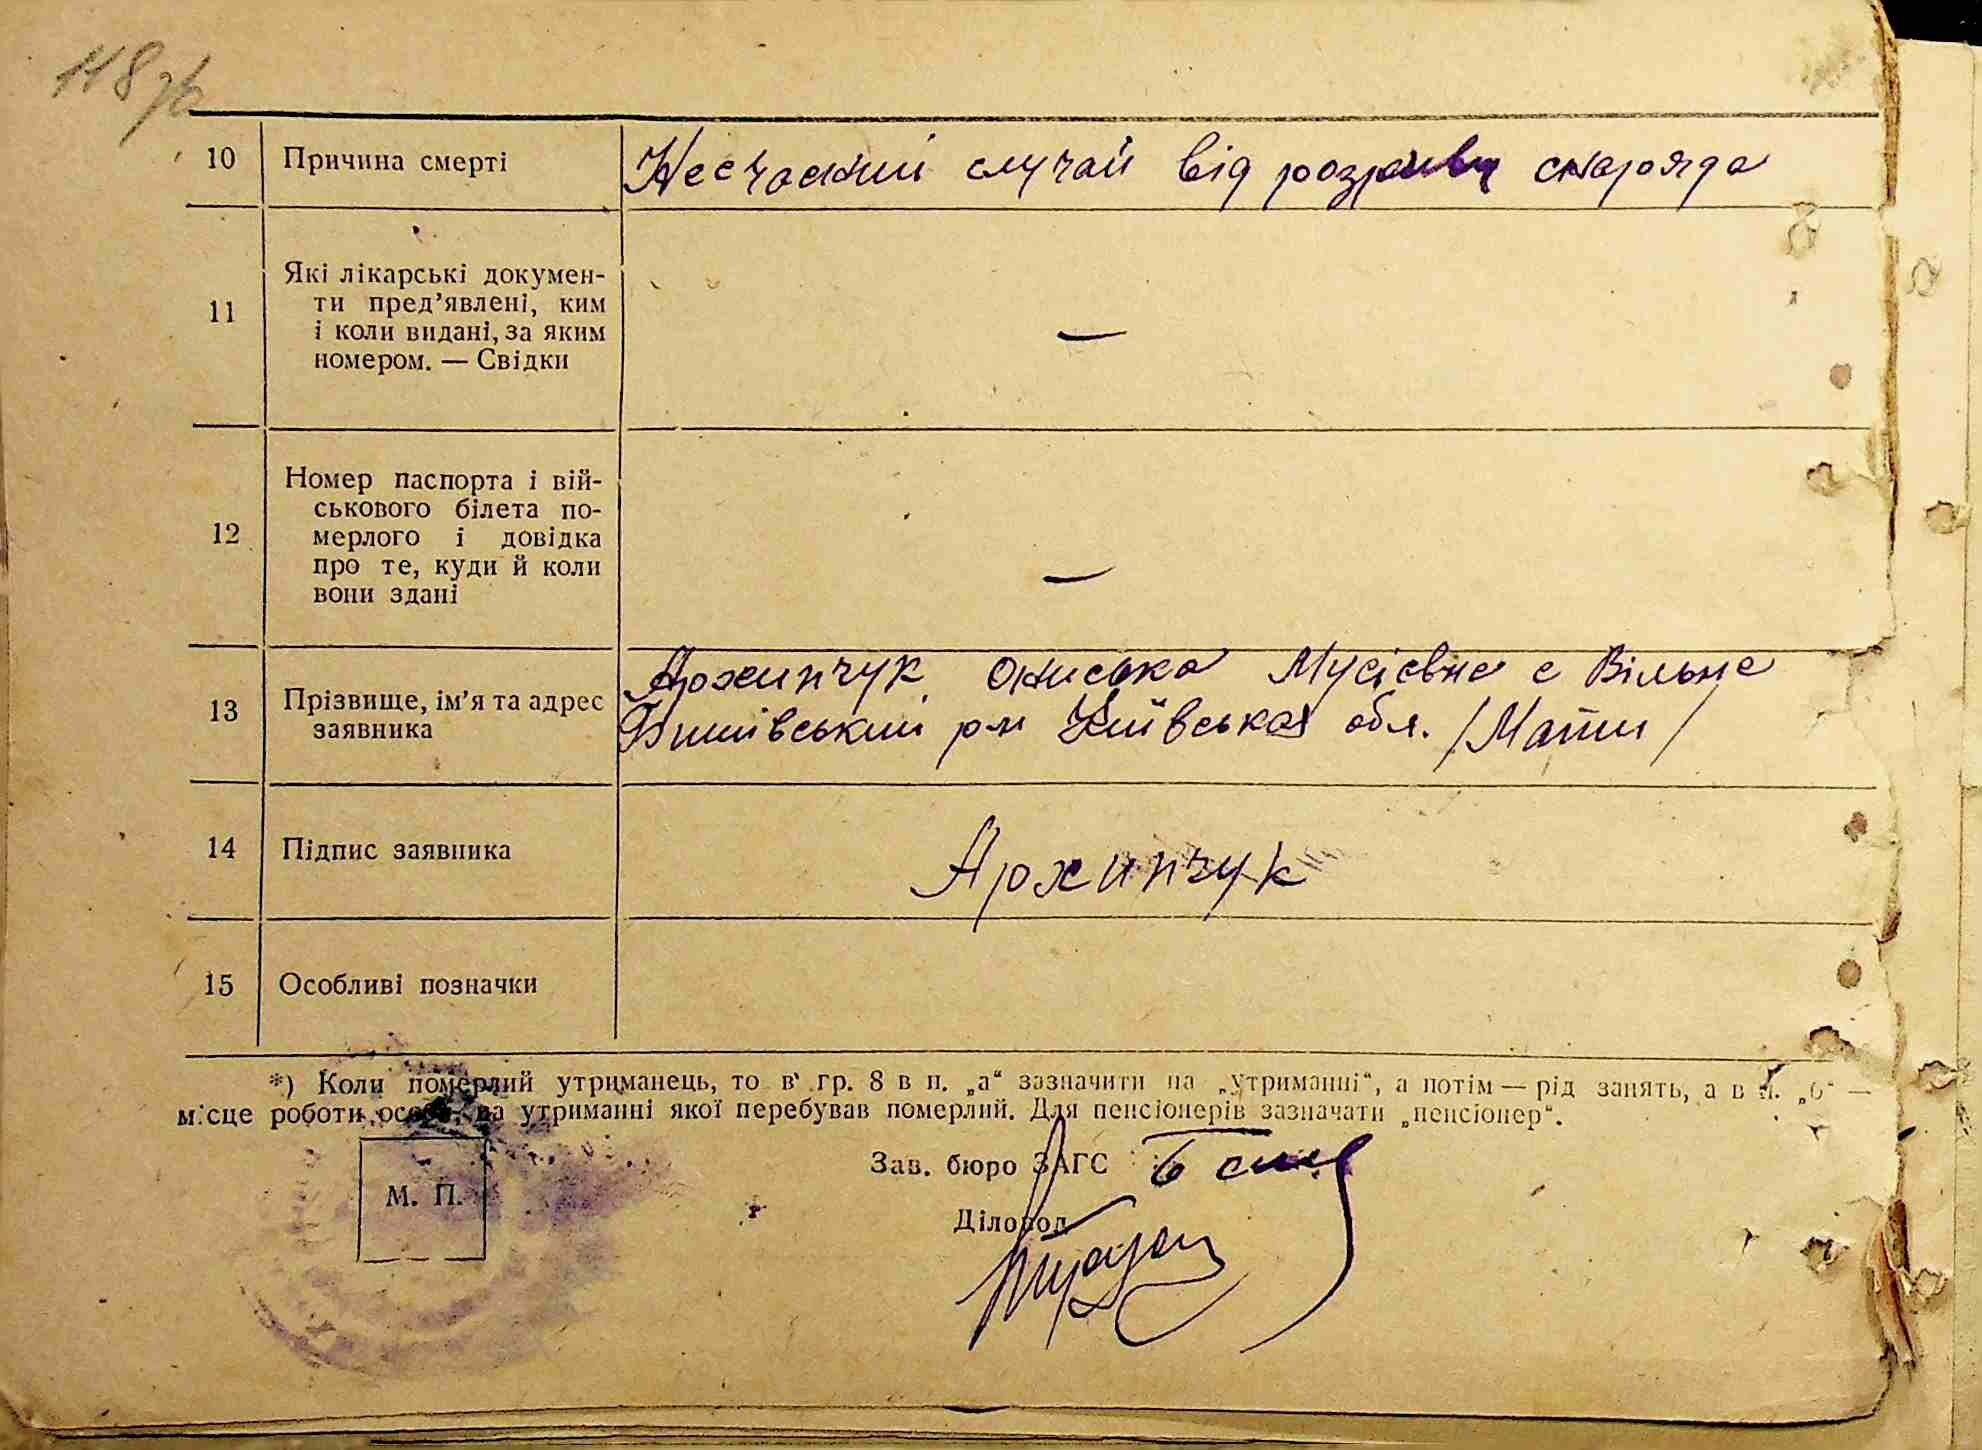 118 зв
10 Причина смерті Несчасний случай від розриву снаряда
11 Які лікарські докумен-
ти пред’явлені, ким
і коли видані, за яким
номером. — Свідки
—
12 Номер паспорта і вій-
ськового білета по-
мерлого і довідка
про те, куди й коли
вони здані
—
13 Прізвище, ім’я та адрес
заявника
Архипчук Ониська Мусієвна с Вільне
Бишівський р-н Київська обл. /Мати/
14 Підпис заявника Архипчук
15 Особливі позначки
*) Коли померлий утриманець, то в гр. 8 в п. „а“ зазначити на „утриманні“, а потім — рід занять, а в п. „б“ —
місце роботи особи, на утриманні якої перебував померлий. Для пенсіонерів зазначати „пенсіонер“.
М. П.
Зав. бюро ЗАГС
Діловод